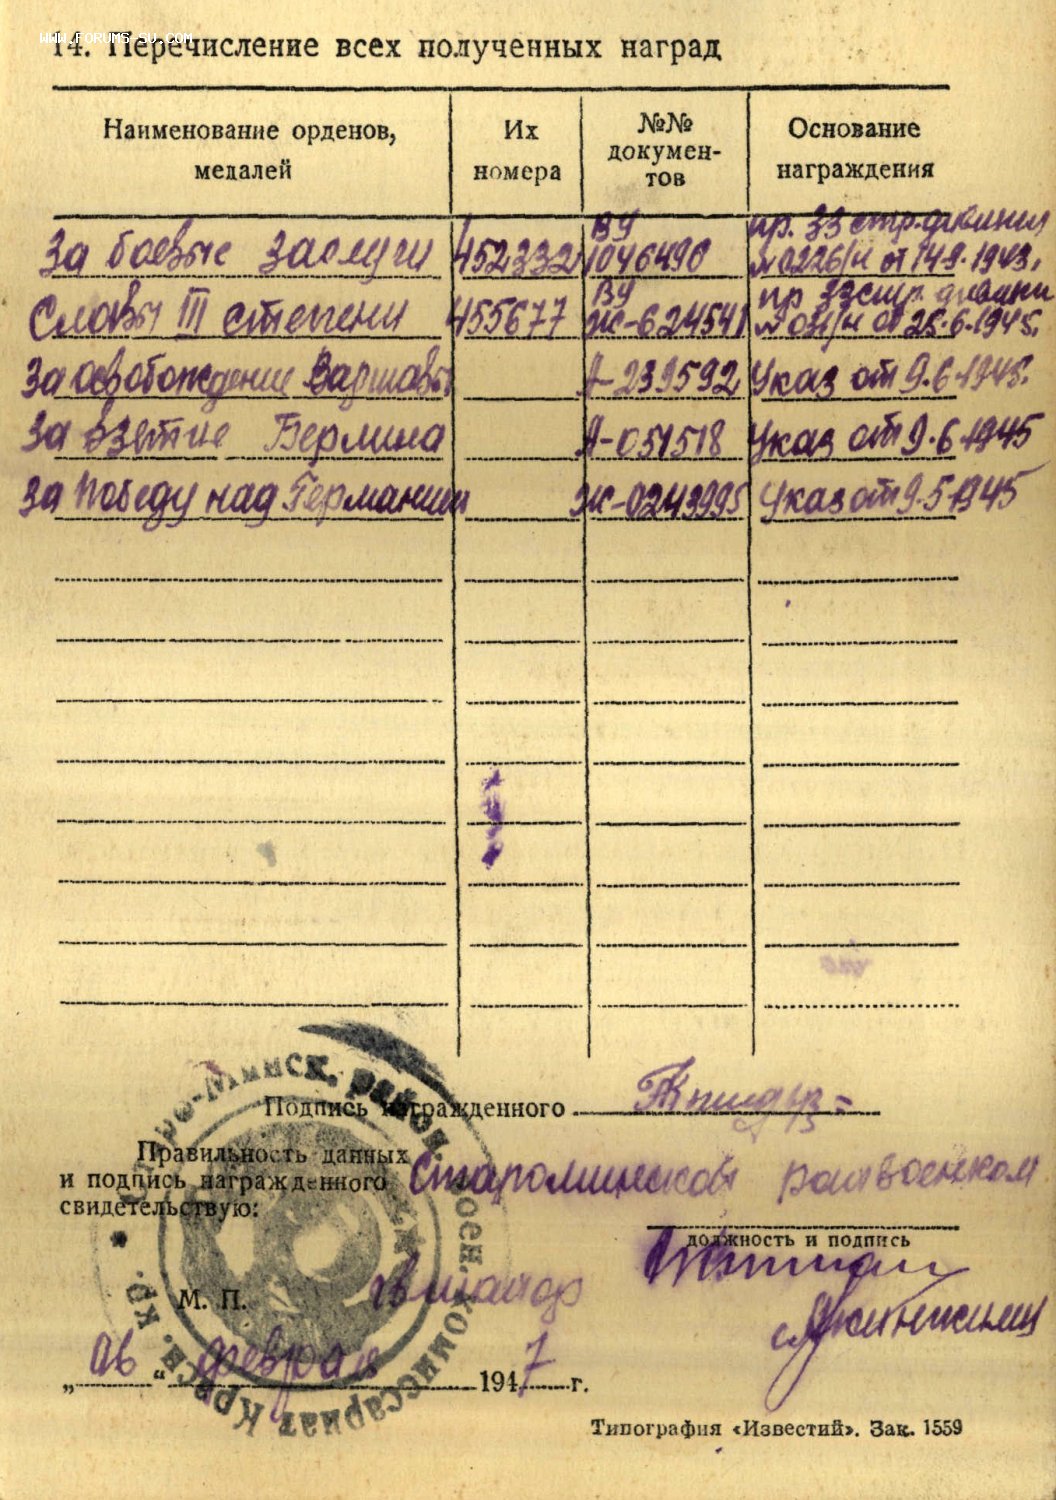 www.forums-su.com
14. Перечисление всех полученных наград
Наименование орденов, медалей
Их номера
№№ документов
Основание награждения
За боевые заслуги 452332 ВУ 1046490 пр. 33 стр. дивизии № 0226/н от 14.9.1943.
Славы III степени 455677 ВУ Ж-624541 пр 33 стр. дивизии № 031/н от 25.6.1945.
За освобождение Варшавы А-239592 Указ от 9.6.1945.
За взятие Берлина А-051518 Указ от 9.6.1945
За Победу над Германией Ж-0243995 Указ от 9.5.1945
Подпись награжденного
Правильность данных
и подпись награжденного
свидетельствую:
Староминской райвоенком
должность и подпись
М. П.
„06“ февраля 1947 г.
Старо-Минск. район. воен. комиссариат Красн. кр.
Типография «Известий». Зак. 1559